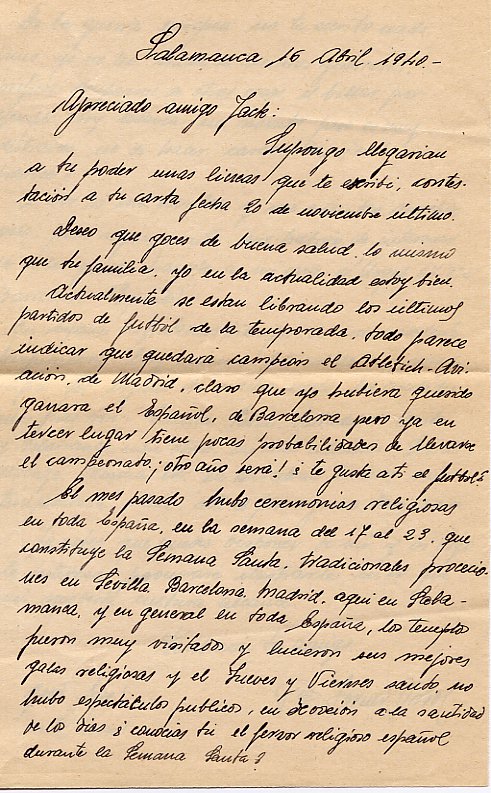 Salamanca 16 Abril 1940.-
Apreciado amigo Jack:
Supongo llegarian
a tu poder unas lineas que te escribi, contes-
tación a tu carta fecha 20 de noviembre último.
Deseo que goces de buena salud lo mismo
que tu familia. yo en la actualidad estoy bien.
Actualmente se estan librando los últimos
partidos de futból de la temporada, todo parece
indicar que quedará campeón el Atletich-Avi-
ación, de Madrid, claro que yo hubiera querido
ganara el Español, de Barcelona pero ya en
tercer lugar tiene pocas probabilidades de llevarse
el campeonato, ¡otro año será! ¿te gusta a ti el futbol?
El mes pasado hubo ceremonias religiosas
en toda España, en la semana del 17 al 23, que
constituye la Semana Santa. tradicionales procesio-
nes en Sevilla, Barcelona, Madrid, aqui en Sala-
manca, y en general en toda España, los templos
fueron muy visitados y lucieron sus mejores
galas religiosas y el Jueves y Viernes santo, no
hubo espectáculos publicos, en devoción a la santidad
de los dias ¿conocias tu el fervor religioso español
durante la Semana Santa?